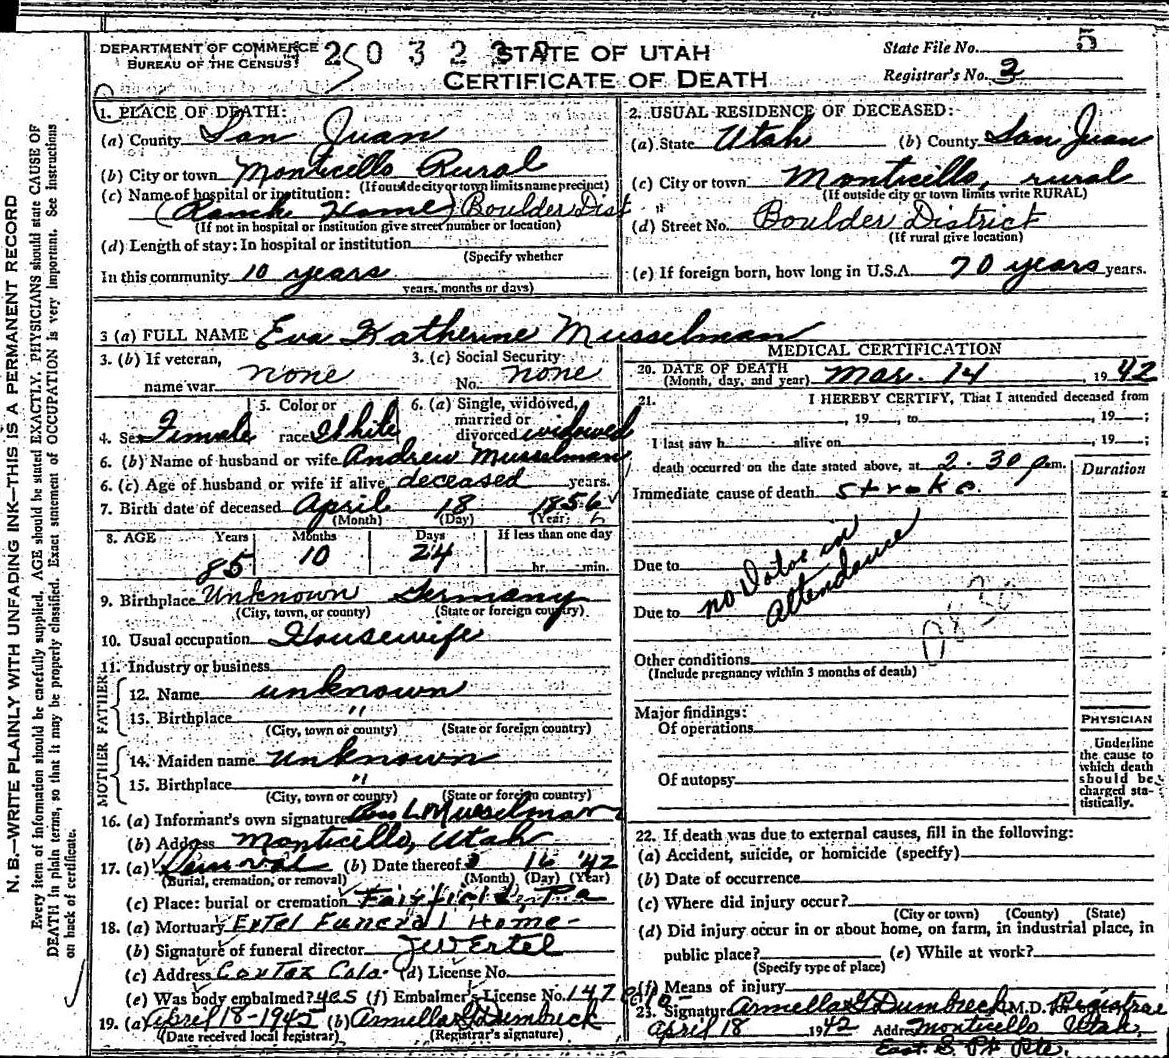 DEPARTMENT OF COMMERCE
BUREAU OF THE CENSUS
STATE OF UTAH
CERTIFICATE OF DEATH
State File No. 5
Registrar's No. 3
N. B.—WRITE PLAINLY WITH UNFADING INK—THIS IS A PERMANENT RECORD
Every item of information should be carefully supplied. AGE should be stated EXACTLY. PHYSICIANS should state CAUSE OF
DEATH in plain terms, so that it may be properly classified. Exact statement of OCCUPATION is very important. See Instructions
on back of certificate.
1. PLACE OF DEATH:
(a) County San Juan
(b) City or town Monticello Rural
(If outside city or town limits name precinct)
(c) Name of hospital or institution:
(Ranch Home) Boulder Dist
(If not in hospital or institution give street number or location)
(d) Length of stay: In hospital or institution
(Specify whether
In this community 10 years
years, months or days)
2. USUAL RESIDENCE OF DECEASED:
(a) State Utah (b) County San Juan
(c) City or town Monticello, rural
(If outside city or town limits write RURAL)
(d) Street No. Boulder District
(If rural give location)
(e) If foreign born, how long in U.S.A. 70 years years.
3 (a) FULL NAME Eva Katherine Musselman
3. (b) If veteran, name war none
3. (c) Social Security No. none
4. Sex Female
5. Color or race White
6. (a) Single, widowed, married or divorced widowed
6. (b) Name of husband or wife Andrew Musselman
6. (c) Age of husband or wife if alive deceased years.
7. Birth date of deceased April 18 1856
(Month) (Day) (Year)
8. AGE Years Months Days If less than one day
85 10 24 hr. min.
9. Birthplace Unknown Germany
(City, town, or county) (State or foreign country)
10. Usual occupation Housewife
11. Industry or business
FATHER
12. Name unknown
13. Birthplace "
(City, town or county) (State or foreign country)
MOTHER
14. Maiden name unknown
15. Birthplace "
(City, town or county) (State or foreign country)
16. (a) Informant's own signature L Musselman
(b) Address Monticello, Utah
17. (a) Removal (b) Date thereof 3 16 '42
(Burial, cremation, or removal) (Month) (Day) (Year)
(c) Place: burial or cremation Fairfield, Pa
18. (a) Mortuary Ertel Funeral Home
(b) Signature of funeral director JW Ertel
(c) Address Cortez Colo. (d) License No.
(e) Was body embalmed? yes (f) Embalmer's License No. 147
19. (a) April 18-1942 (b) Armella G Dumbeck
(Date received local registrar) (Registrar's signature)
MEDICAL CERTIFICATION
20. DATE OF DEATH
(Month, day, and year) Mar. 14, 1942
21. I HEREBY CERTIFY, That I attended deceased from
, 19 , to , 19 ;
I last saw h alive on , 19 ;
death occurred on the date stated above, at 2.30 p.m.
Duration
Immediate cause of death stroke
Due to
no Doctor in attendance
Due to
Other conditions
(Include pregnancy within 3 months of death)
Major findings:
Of operations
Of autopsy
PHYSICIAN
Underline
the cause to
which death
should be
charged sta-
tistically.
22. If death was due to external causes, fill in the following:
(a) Accident, suicide, or homicide (specify)
(b) Date of occurrence
(c) Where did injury occur?
(City or town) (County) (State)
(d) Did injury occur in or about home, on farm, in industrial place, in
public place? (e) While at work?
(Specify type of place)
(f) Means of injury
23. Signature Armella G Dumbeck M.D. Registrar
April 18 1942 Address Monticello Utah.